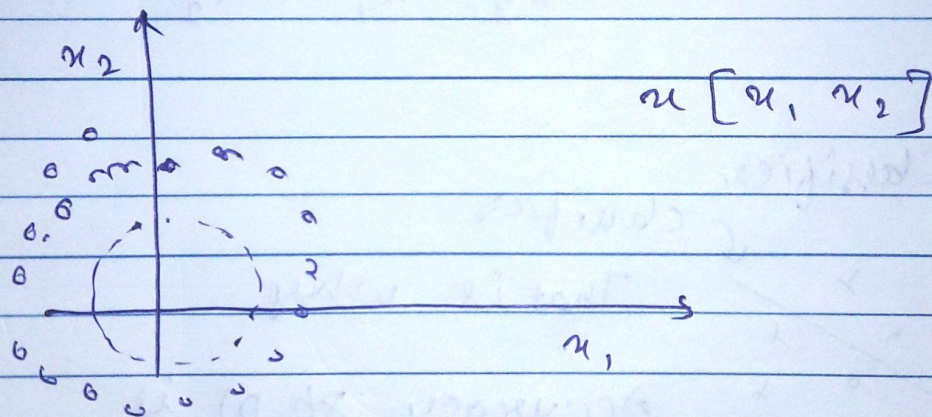 x₂
x [x₁ x₂]
x₁